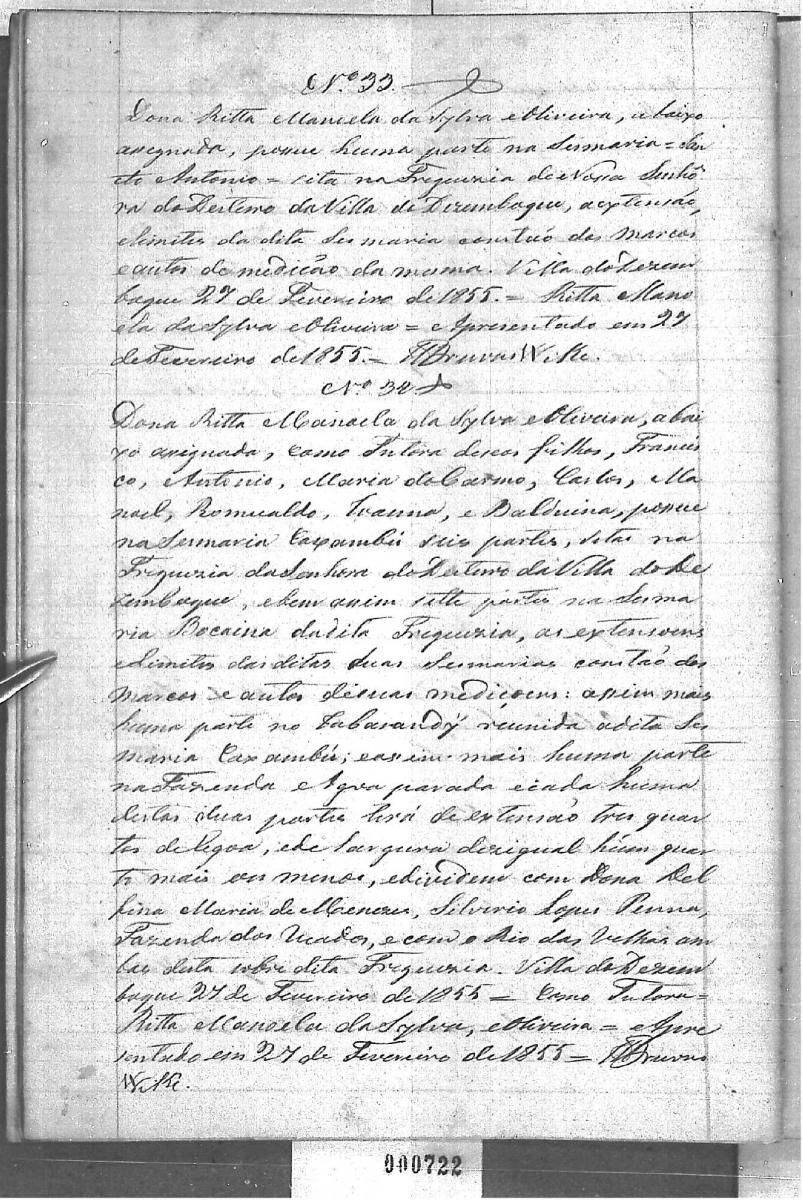 Nº 33.
Dona Ritta Manuela da Sylva e Oliveira, abaixo
asegnada, posue huma parte na Sesmaria = San
to Antonio = sita na Freguezia de Nossa Senhô
ra do Desterro da Villa de Dezemboque, a extensão,
e limites da dita Sesmaria constaõ dos marcos
e autos de medicão da mesma. Villa do Dezem
boque 27 de Fevereiro de 1855. = Ritta Mano
ela da Sylva e Oliveira = Apresentado em 27
de Fevereiro de 1855. =
Nº 34
Dona Ritta Manoela da Sylva e Oliveira, abai
xo asignada, como Tutora de seos filhos, Francis
co, Antonio, Maria do Carmo, Carlos, Ma
noel, Romualdo, Joanna, e Balduina, posue
na Sesmaria Caxambú seis partes, sitas na
Freguezia da Senhora do Desterro da Villa do De
zemboque, e bem asim sette partes na Sesma
ria Bocaina da dita Freguezia, as extensoens
e limites das ditas duas Sesmarias constaõ dos
marcos e autos de suas mediçoens: asim mais
huma parte no reunida a dita Ses
maria Caxambú; e asim mais huma parte
na Fazenda Agoa parada e cada huma
destas duas partes terá de extensaõ tres quar
tos de legoa, e de largura dezigual hum quar
to mais ou menos, e dividem com Dona Del
fina Maria de Menezes, Silverio Lopes Penna,
Fazenda dos Veados, e com o Rio das Velhas am
bas desta sobre dita Freguezia. Villa do Dezem
boque 27 de Fevereiro de 1855 = Como Tutora =
Ritta Manoela da Sylva, e Oliveira = Apre
sentado em 27 de Fevereiro de 1855 =
000722